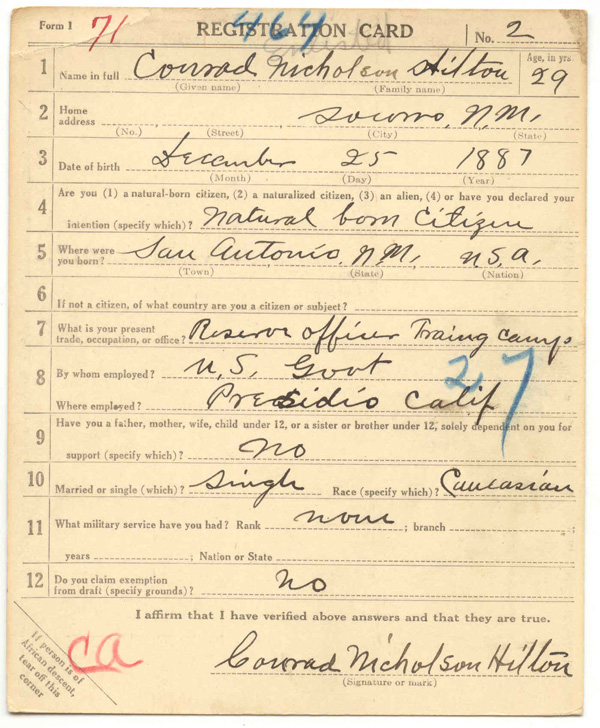 Form 1 71 REGISTRATION CARD 464 No. 2
Enlisted
1 Name in full Conrad Nicholson Hilton Age, in yrs. 29
(Given name) (Family name)
2 Home address Socorro, N.M.
(No.) (Street) (City) (State)
3 Date of birth December 25 1887
(Month) (Day) (Year)
4 Are you (1) a natural-born citizen, (2) a naturalized citizen, (3) an alien, (4) or have you declared your
intention (specify which)? Natural born Citizen
5 Where were you born? San Antonio, N.M. U.S.A.
(Town) (State) (Nation)
6 If not a citizen, of what country are you a citizen or subject?
7 What is your present trade, occupation, or office? Reserve officer Traing camp
8 By whom employed? U.S. Govt
Where employed? Presidio Calif 27
9 Have you a father, mother, wife, child under 12, or a sister or brother under 12, solely dependent on you for
support (specify which)? No
10 Married or single (which)? Single Race (specify which)? Caucasian
11 What military service have you had? Rank none ; branch ;
years ; Nation or State
12 Do you claim exemption from draft (specify grounds)? No
I affirm that I have verified above answers and that they are true.
If person is of
African descent,
tear off this
corner
CA
Conrad Nicholson Hilton
(Signature or mark)